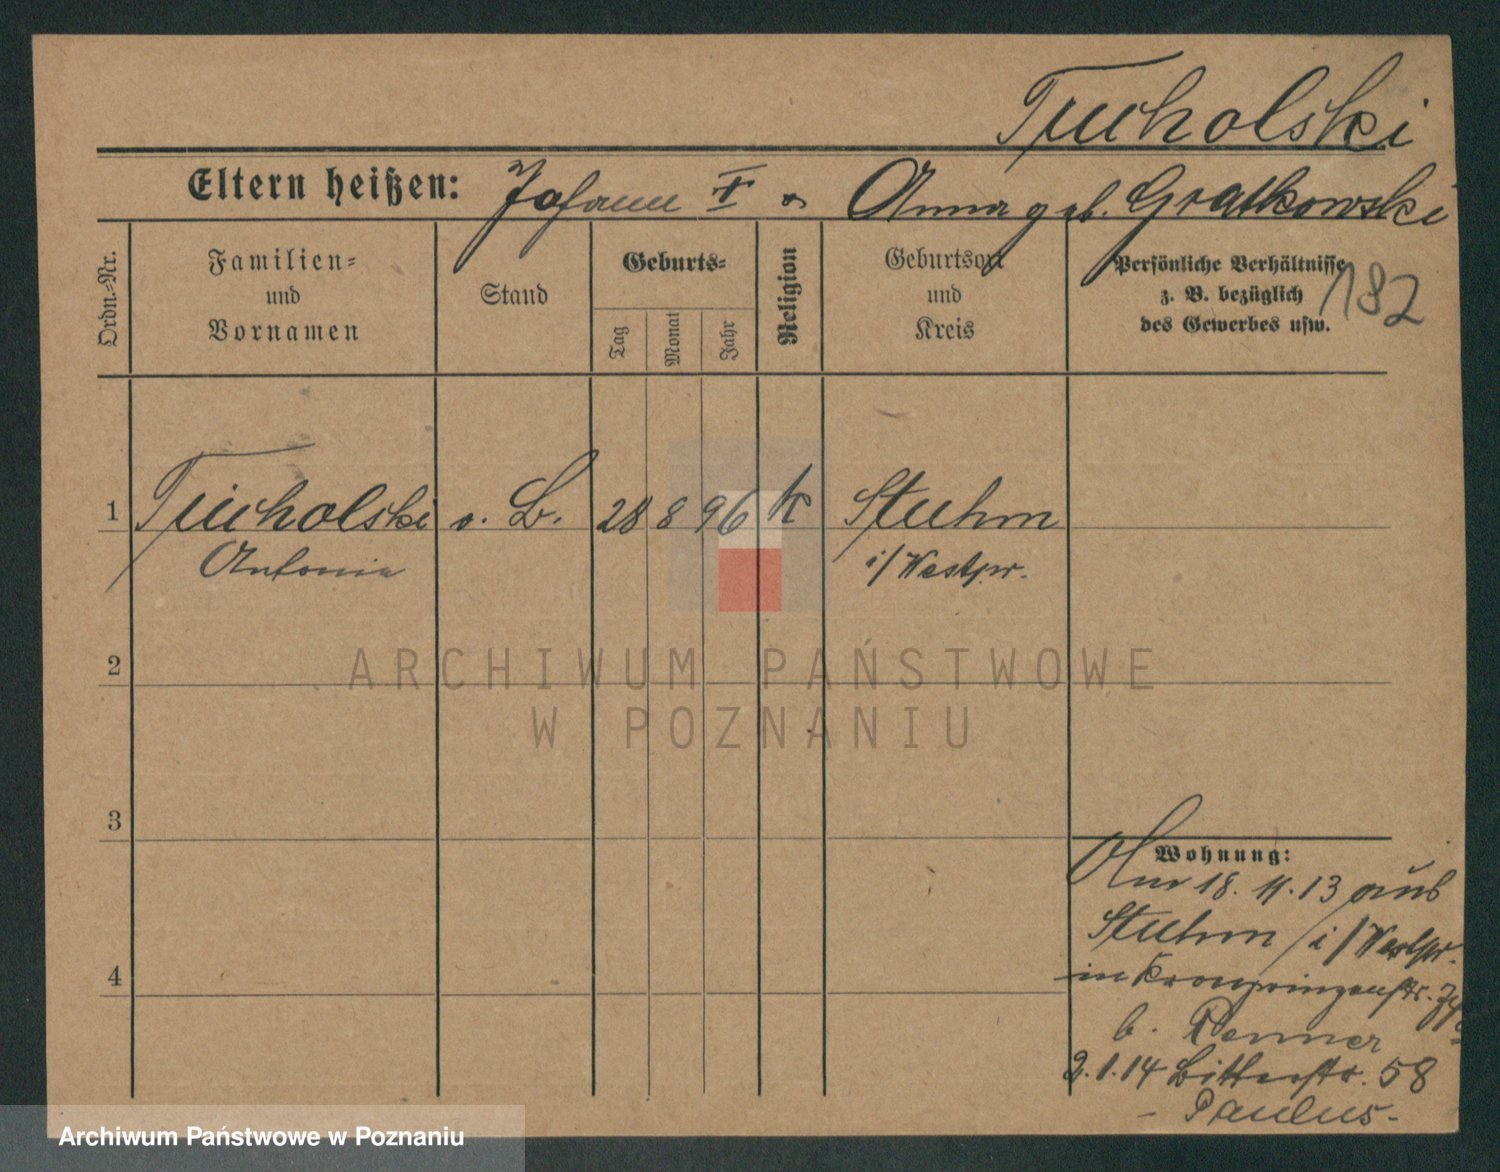 Tucholski
Eltern heißen: Johann † & Anna geb. Gratkowski
Ordn.-Nr.
Familien-
und
Vornamen
Stand
Geburts-
Tag
Monat
Jahr
Religion
Geburtsort
und
Kreis
Persönliche Verhältnisse
z. B. bezüglich
des Gewerbes usw.
182
1 Tucholski o. B. 28 8 96 k Stuhm
Antonie i/Westpr.
2
3
4
Wohnung:
Am 18. 11. 13 aus
Stuhm i/Westpr.
in Kronprinzenstr.
b. Penner
2.1.14 Bitterstr. 58
- Paulus -
ARCHIWUM PAŃSTWOWE
W POZNANIU
Archiwum Państwowe w Poznaniu